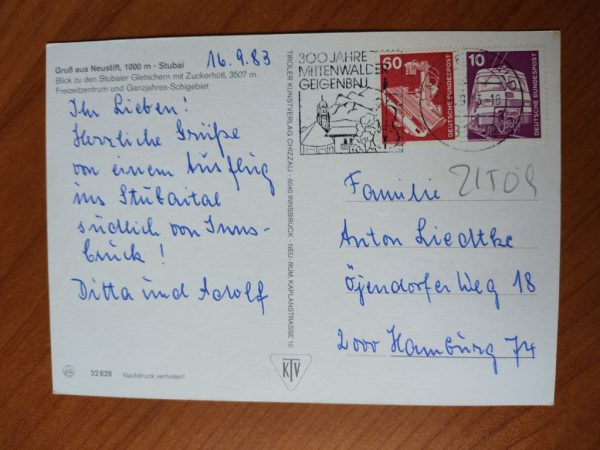 Gruß aus Neustift, 1000 m - Stubai
Blick zu den Stubaier Gletschern mit Zuckerhütl, 3507 m
Freizeitzentrum und Ganzjahres-Schigebiet
16.9.83
Ihr Lieben!
Herzliche Grüße
von einem Ausflug
ins Stubaital
südlich von Inns-
bruck!
Ditta und Adolf
32 828 Nachdruck verboten!
TIROLER KUNSTVERLAG CHIZZALI · 6040 INNSBRUCK - NEU-RUM, KAPLANSTRASSE 10
KTV
300 JAHRE
MITTENWALDER
GEIGENBAU
60
DEUTSCHE BUNDESPOST
10
DEUTSCHE BUNDESPOST
Familie
Anton Liedtke
Öjendorfer Weg 18
2000 Hamburg 74